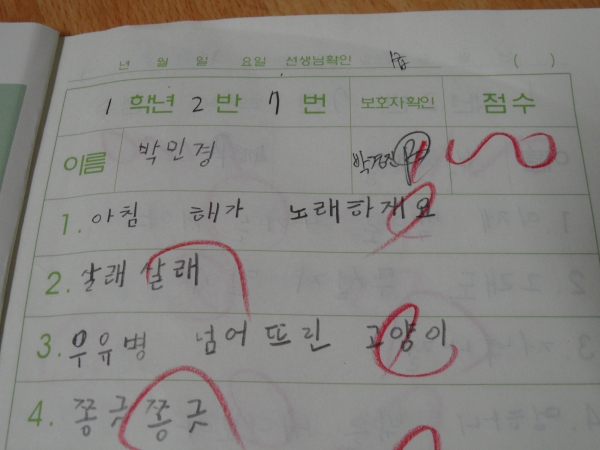 년 월 일 요일 선생님확인 ( )
1 학년 2 반 7 번 보호자확인 점수
이름 박민경
1. 아침 해가 노래하재요
2. 살래살래
3. 우유병 넘어뜨린 고양이
4. 쫑긋쫑긋